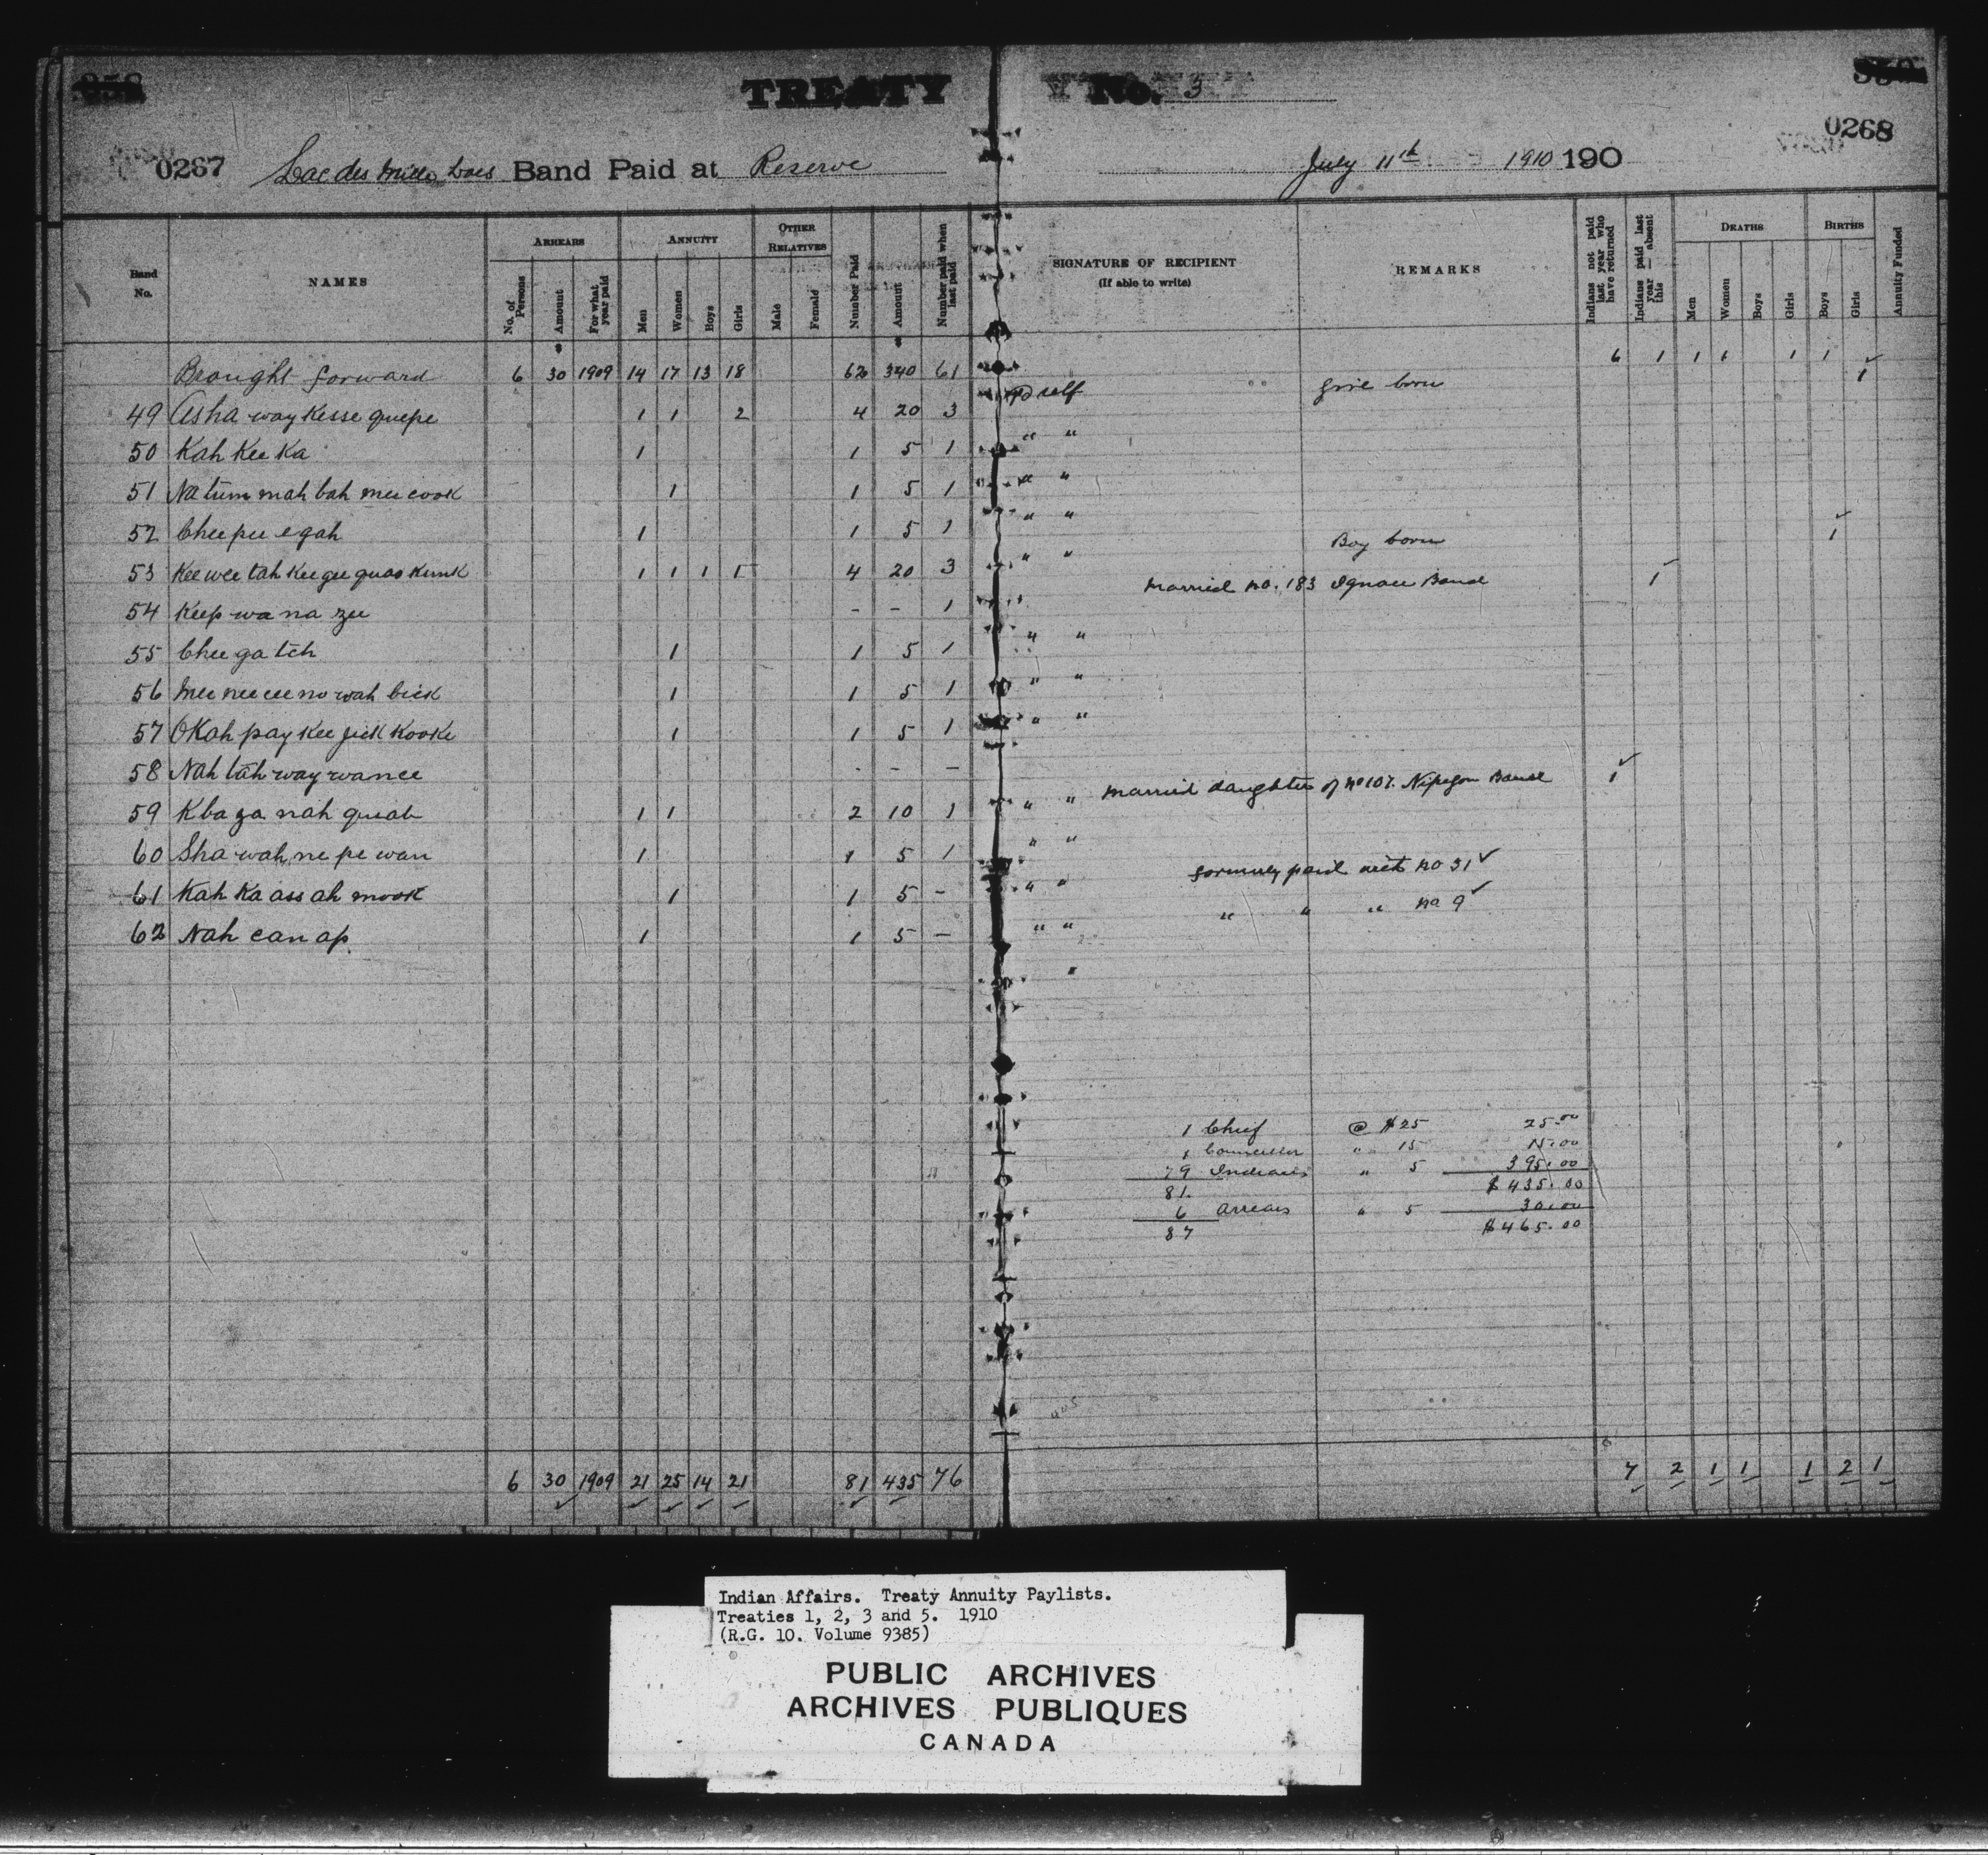 TREATY No. 3
0267 0268
Lac des Mille Lacs Band Paid at Reserve July 11th 1910 190
Band No.
NAMES
ARREARS
No. of Persons
Amount
For what year paid
ANNUITY
Men
Women
Boys
Girls
OTHER RELATIVES
Male
Female
Number Paid
Amount
Number paid when last paid
SIGNATURE OF RECIPIENT
(If able to write)
REMARKS
Indians not paid last year who have returned
Indians paid last year — absent this
DEATHS
Men
Women
Boys
Girls
BIRTHS
Boys
Girls
Annuity Funded
Brought forward 6 30 1909 14 17 13 18 62 340 61 6 1 1 1 1 1
49 Asha way Kesse quepe 1 1 2 4 20 3 Pd self Girl born 1
50 Kah Kee Ka 1 1 5 1 " "
51 Na tum mah bah mee cook 1 1 5 1 " "
52 Chee pee e gah 1 1 5 1 " "
53 Kee wee tah Kee gee quas Kunk 1 1 1 1 4 20 3 " " Boy born 1
54 Keep wa na zee - - 1 Married no. 183 Ignace Band 1
55 Chee ga tch 1 1 5 1 " "
56 Mee nee cee no wah bick 1 1 5 1 " "
57 OKah pay Kee jick Kooke 1 1 5 1 " "
58 Nah tah way wance - - -
59 Kba za nah quab 1 1 2 10 1 " " Married daughter of no 107. Nipegon Band 1
60 Sha wah ne pe wan 1 1 5 1 " "
61 Kah Ka ass ah mook 1 1 5 - " " formerly paid with no 31
62 Nah can ap. 1 1 5 - " " " " " no 9
1 Chief @ $25 25.00
1 Councillor " 15 15.00
79 Indians " 5 395.00
81. $435.00
6 arrears " 5 30.00
87 $465.00
6 30 1909 21 25 14 21 81 435 76 7 2 1 1 1 2 1
Indian Affairs. Treaty Annuity Paylists.
Treaties 1, 2, 3 and 5. 1910
(R.G. 10. Volume 9385)
PUBLIC ARCHIVES
ARCHIVES PUBLIQUES
CANADA